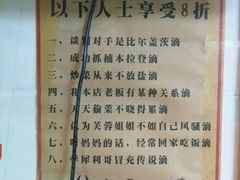 以下人士享受8折
一、谈判对手是比尔盖茨滴
二、成功抓捕本拉登滴
三、炒菜从来不放盐滴
四、和本店老板有某种关系滴
五、天天偷菜不晓得累滴
六、认为芙蓉姐姐不如自己风骚滴
七、听妈妈的话，经常回家吃饭滴
八、犀利哥冒充传说滴